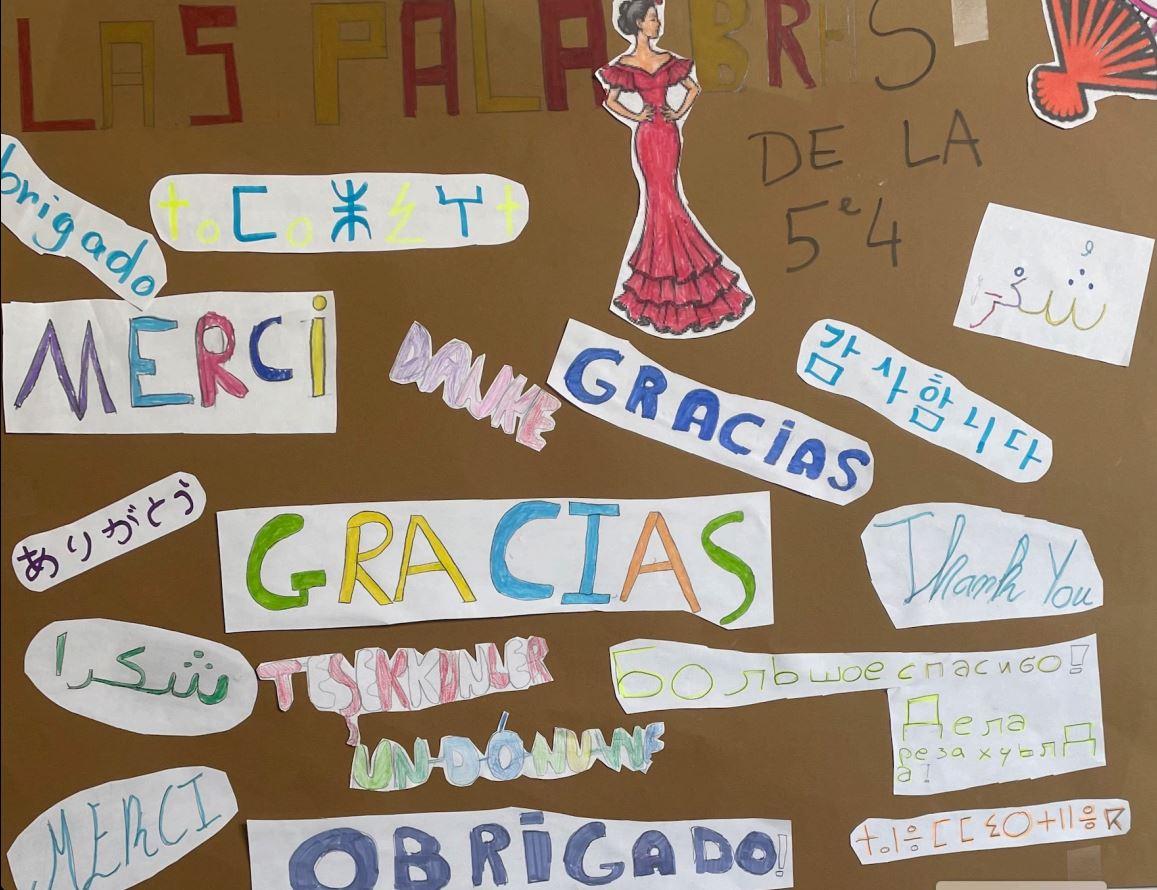 LAS PALABRAS
DE LA
5e4
brigado
ⵜⴰⵎⴰⵣⵉⵖⵜ
شكرًا
MERCi
DANKE
GRACiAS
감사합니다
ありがとう
GRACIAS
Thank You
شكرا
TEŞEKKÜNLER
Большое спасибо!
Дела
резахуьлд
а!
UN-D-ÓNUANE
MERCI
OBRiGADO!